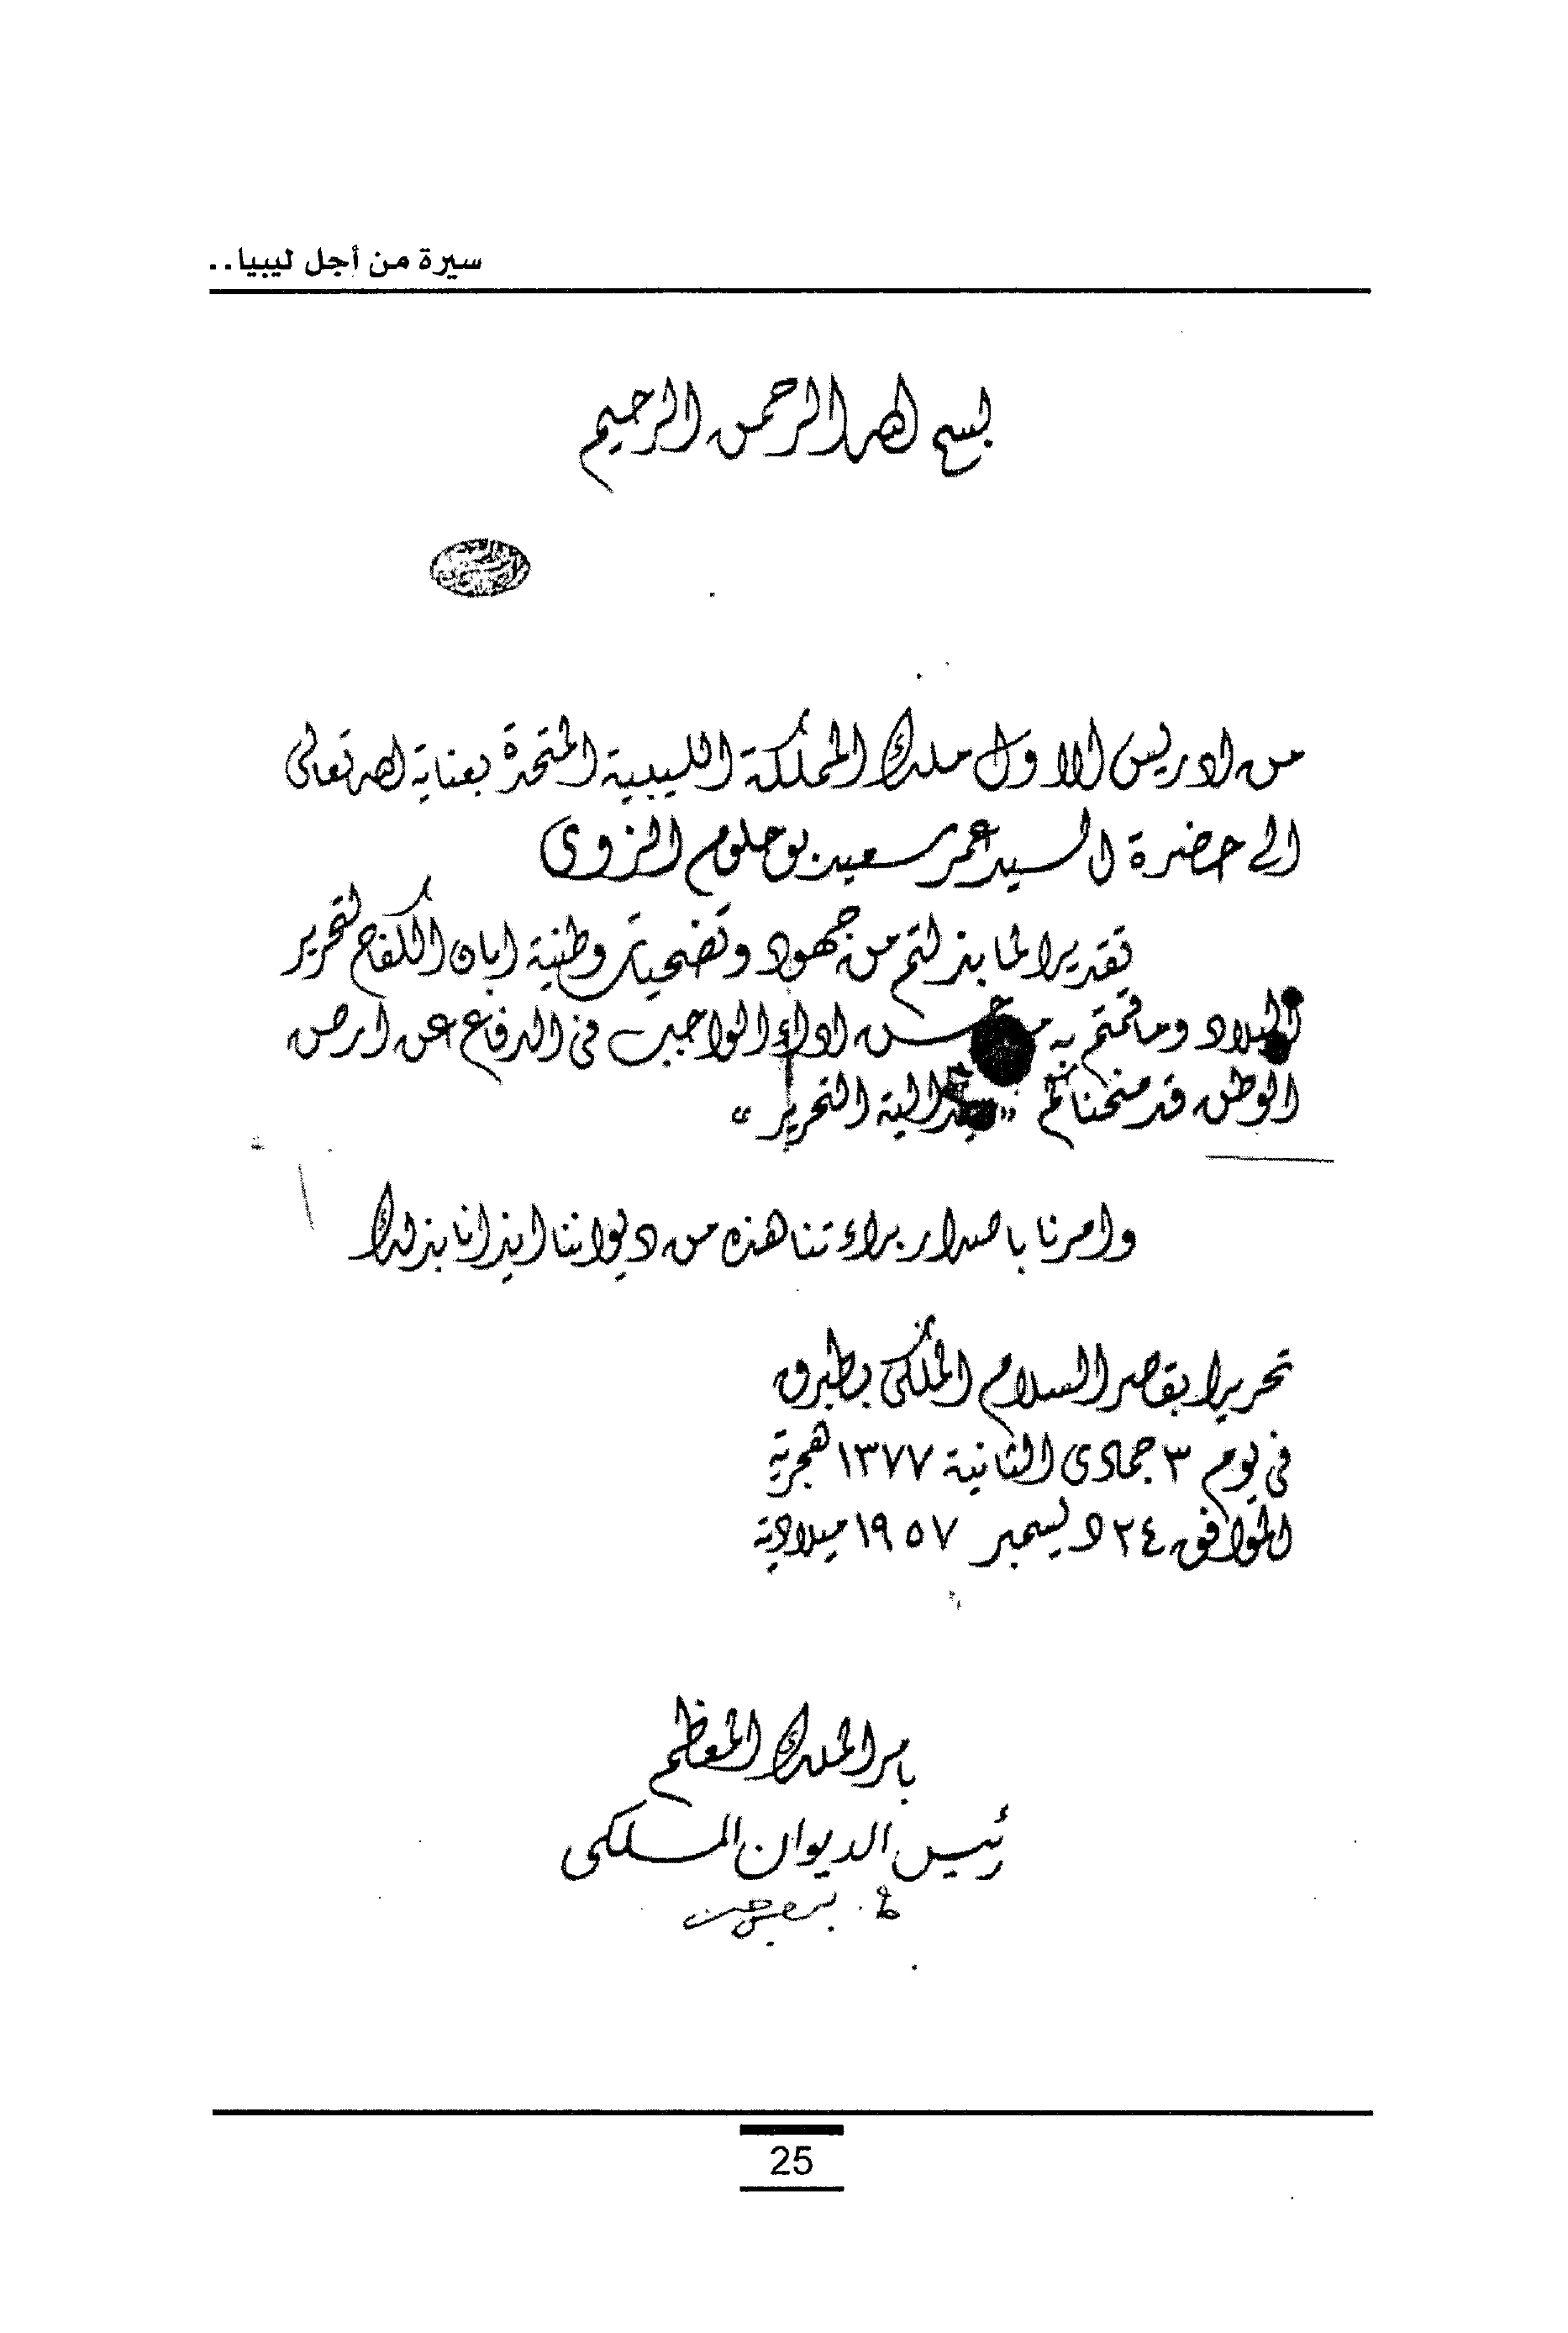 سيرة من أجل ليبيا..
بسم الله الرحمن الرحيم
من ادريس الاول ملك المملكة الليبية المتحدة بعناية الله تعالى
الى حضرة السيد عمر سعيد بو حلوم الزوى
تقديرا لما بذلتم من جهود وتضحيات وطنية ابان الكفاح لتحرير
البلاد وما قمتم به من حسن اداء الواجب فى الدفاع عن ارض
الوطن قد منحناكم "ميدالية التحرير"
وامرنا باصدار براءتنا هذه من ديواننا ايذانا بذلك
تحريرا بقصر السلام الملكى بطبرق
فى يوم ٣ جمادى الثانية ١٣٧٧ هجرية
الموافق ٢٤ ديسمبر ١٩٥٧ ميلادية
بامر الملك المعظم
رئيس الديوان الملكى
25